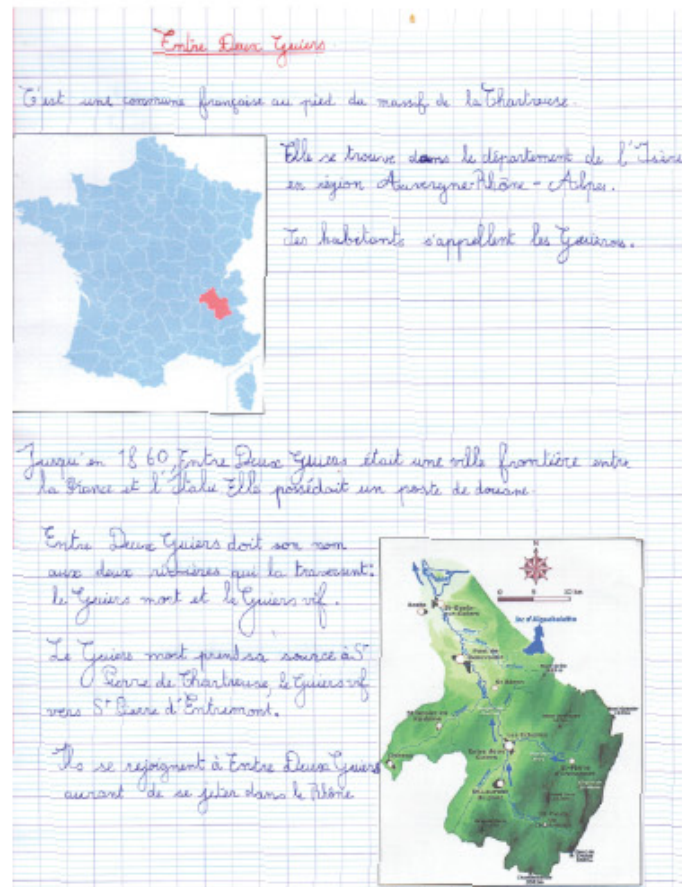 Entre Deux Guiers
C'est une commune française au pied du massif de la Chartreuse.
Elle se trouve dans le département de l'Isère
en région Auvergne-Rhône-Alpes.
Ses habitants s'appellent les Guiérois.
Jusqu'en 1860, Entre Deux Guiers était une ville frontière entre
la France et l'Italie Elle possédait un poste de douane.
Entre Deux Guiers doit son nom
aux deux rivières qui la traversent:
le Guiers mort et le Guiers vif.
Le Guiers mort prend sa source à St
Pierre de Chartreuse, le Guiers vif
vers St Pierre d'Entremont.
Ils se rejoignent à Entre Deux Guiers
avant de se jeter dans le Rhône
N
0 5 10 km
lac d'Aiguebelette
Les Echelles